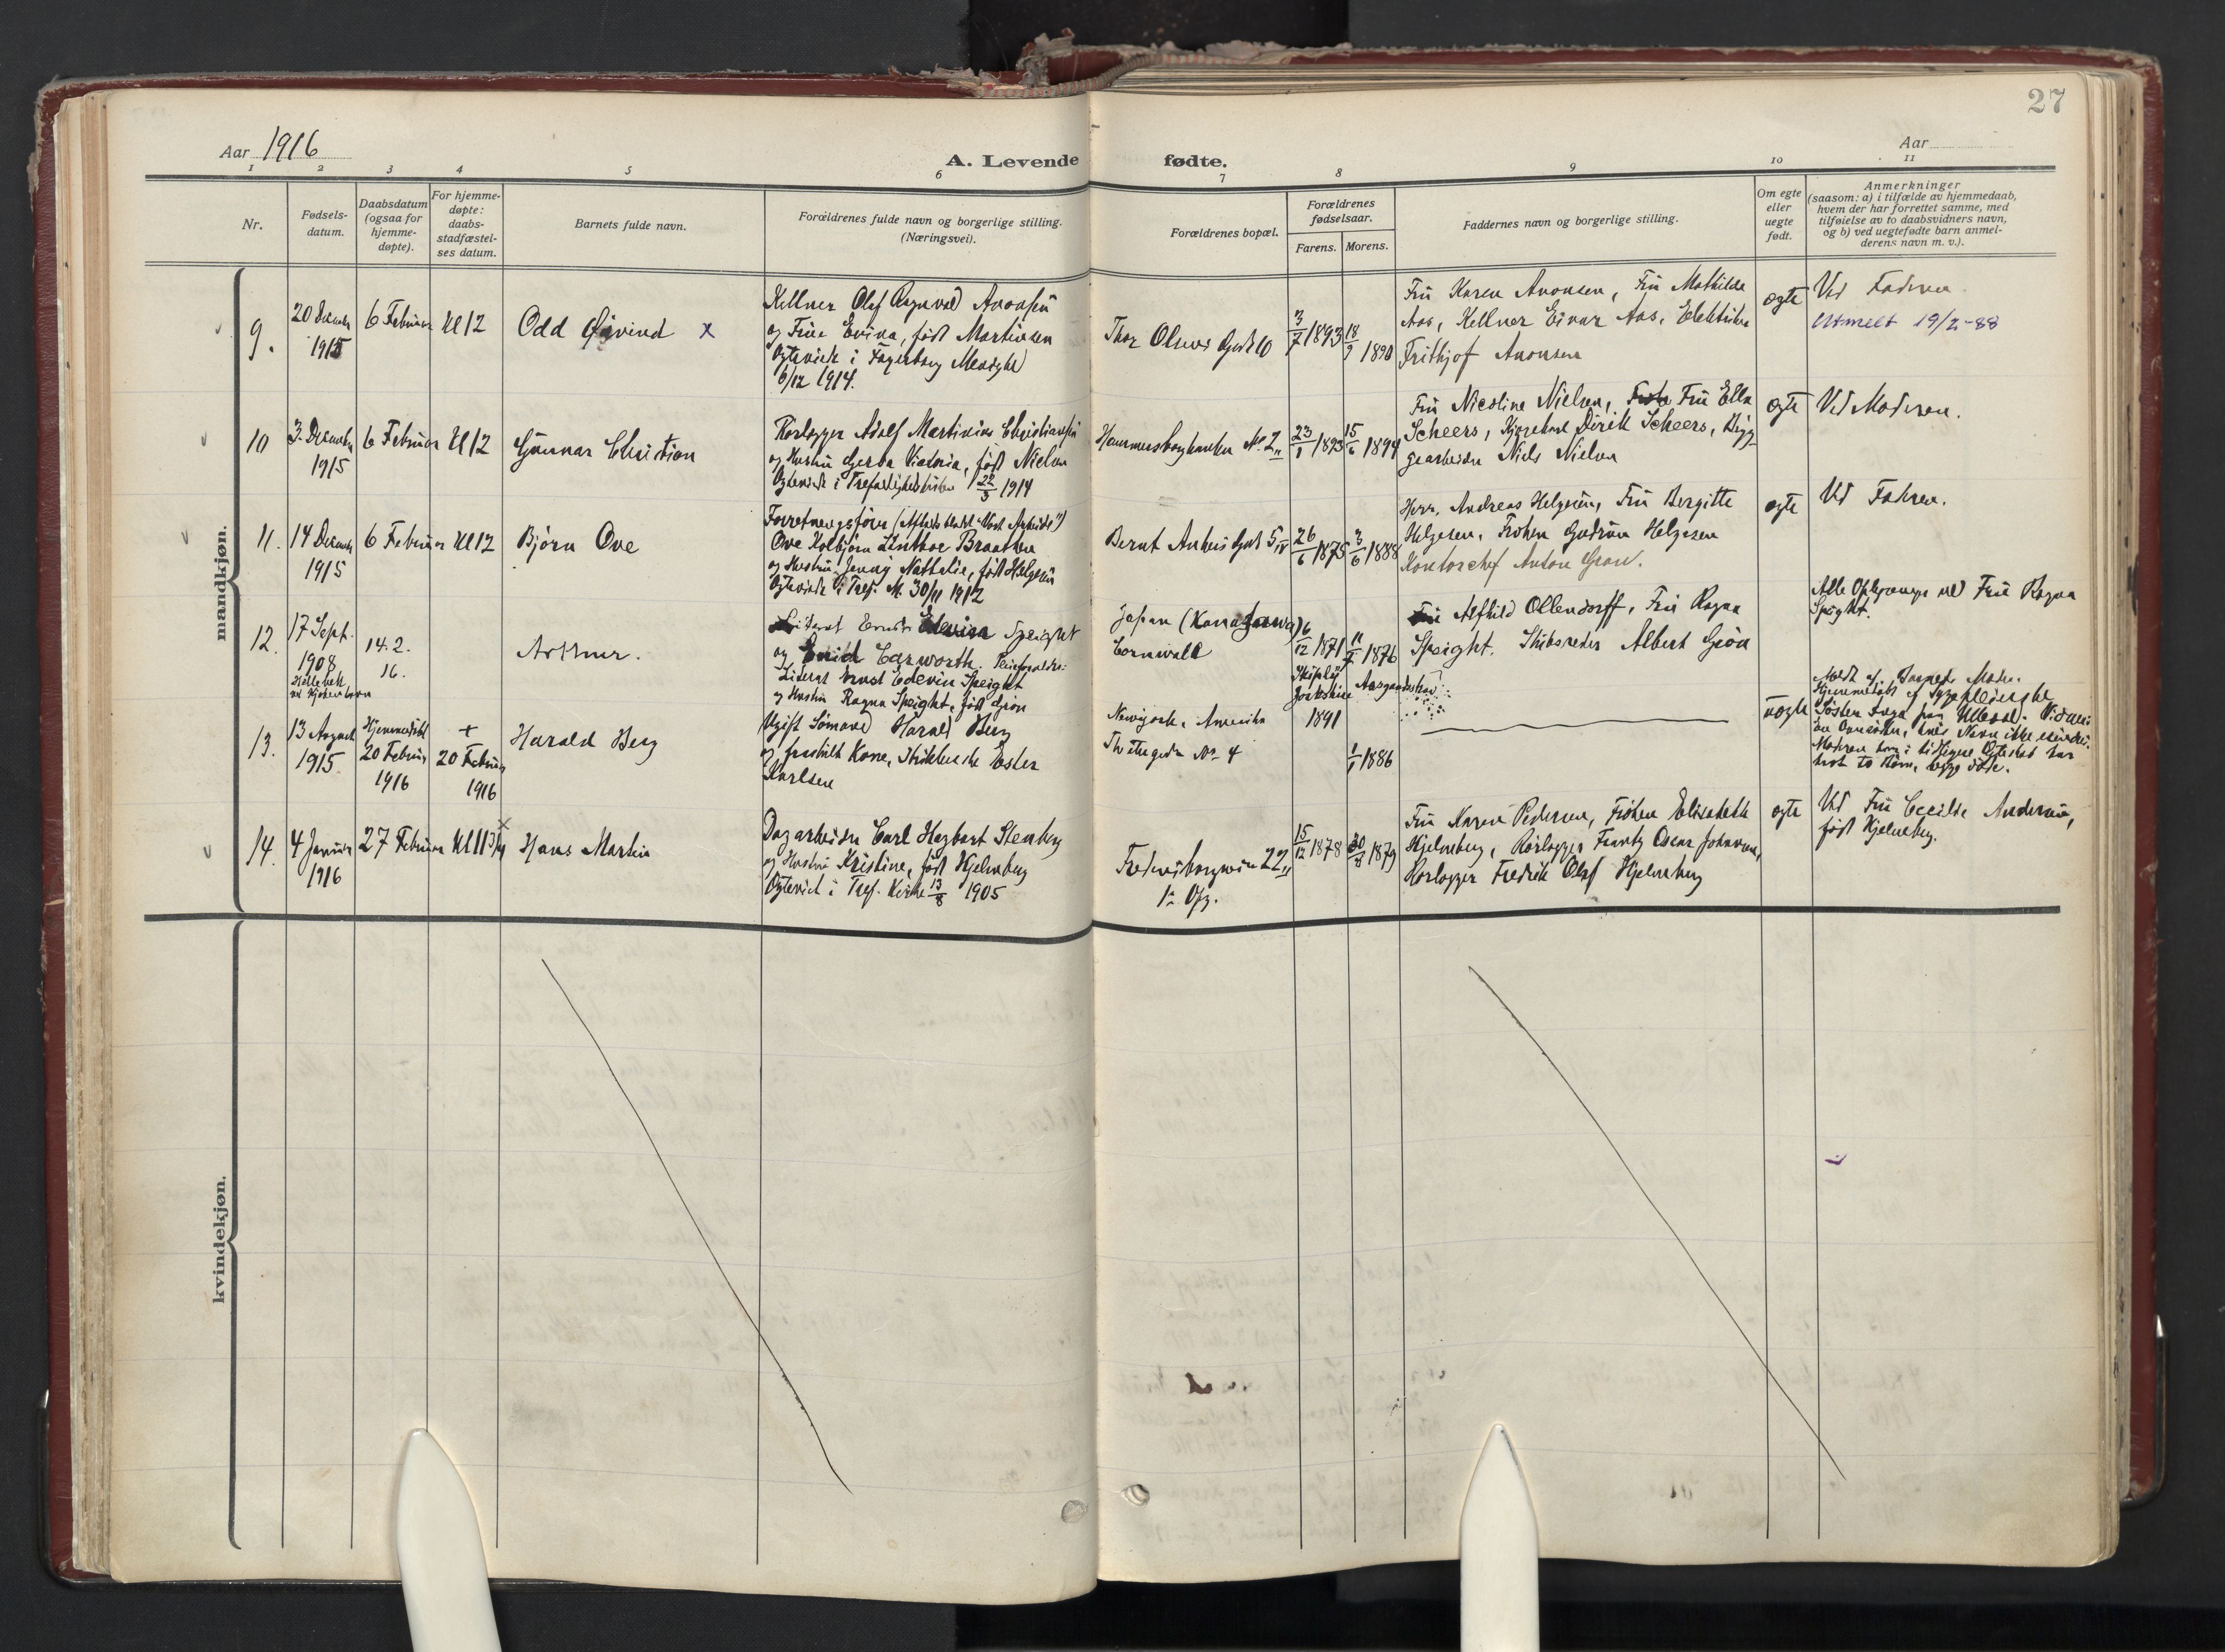 27
Aar 1916
Aar
A. Levende fødte.
1 2 3 4 5 6 7 8 9 10 11
Nr.
Fødsels-
datum.
Daabsdatum
(ogsaa for
hjemme-
døpte).
For hjemme-
døpte:
daabs-
stadfæstel-
ses datum.
Barnets fulde navn.
Forældrenes fulde navn og borgerlige stilling.
(Næringsvei).
Forældrenes bopæl.
Forældrenes
fødselsaar.
Farens. Morens.
Faddernes navn og borgerlige stilling.
Om egte
eller
uegte
født.
Anmerkninger
(saasom: a) i tilfælde av hjemmedaab,
hvem der har forrettet samme, med
tilføielse av to daabsvidners navn,
og b) ved uegtefødte barn anmel-
derens navn m. v.).
mandkjøn.
9.
20 Decemb
1915
6 Februar
Kl 12
Odd Øivind x
Kellner Olaf Ragnvald Aronsen
og Frue Evina, født Martinsen
Egteviet i Fagerborg Menighed
6/12 1914.
Thor Olsens Gade 10
3/7 1893
18/9 1890
Fru Karen Aronsen, Fru Mathilde
Aas, Kellner Einar Aas, Elektriker
Frithjof Aronsen
egte
Ved Faderen
Utmeldt 19/2-88
10
3. December
1915
6 Februar
Kl 12
Gunnar Christian
Rørlægger Adolf Martinius Christiansen
og Hustru Gerda Victoria, født Nielsen
Egteviet i Trefoldighedskirken 22/3 1914
Hammersborgbakken No 2 II
23/1 1893
15/6 1894
Fru Nicoline Nielsen, Fru Ella
Scheers, Kjørekarl Dirik Scheers, Bryg-
gearbeider Niels Nielsen
egte
Ved Moderen.
11.
14 Decemb
1915
6 Februar
Kl 12
Bjørn Ove
Forretningsfører (Afholdsbladet "Vort Arbeide")
Ove Kolbjørn Braathen
og Hustru Jenny Nathalie, født Helgesen
Egteviet i Tref. M. 30/11 1912
Bernt Ankers Gade 5 IV
26/6 1875
3/6 1888
Herr. Andreas Helgesen, Fru Bergitte
Helgesen, Frøken Gudrun Helgesen
Kontorchef Anton Gran.
egte
Ved Faderen.
12.
17 Sept.
1908
Hellebek
ved Kjøbenhavn
14.2.
16.
Arthur.
Literat Ernst Edwin Speight
og Enid Carworth. Pleieforældre:
Literat Ernst Edevin Speight
og Hustru Ragna Speight, født Grøn
Japan (Kanazawa)
Cornwall
6/12 1871
11/7 1876
Shipley
Yorkshire
Aasgaardstrand
Fru Alfhild Ollendorff, Fru Ragna
Speight. Skibsreder Albert Grøn
Alle Oplysninger ved Fru Ragna
Speight.
13.
13 August
1915
Hjemmedøbt
20 Februar
1916
+
20 Februar
1916
Harald Berg
Ugift Sømand Harald Berg
og fraskilt Kone, Ester
Karlsen
Newyork, Amerika
Thvetegade No 4
1891
1/1 1886
uegte
Moderen som i tidligere Egteskab har
havt to Børn, begge døde.
14.
4 Januar
1916
27 Februar
Kl 11 3/4
x
Hans Martin
Dagarbeider Carl Hagbart Stenberg
og Hustru Kristine, født Hjelmeberg
Egteviet i Tref. Kirke 13/8 1905
Fredensborgveien 22 II
1. Opg.
15/12 1878
30/8 1879
Fru Karen Pedersen, Frøken Elisabeth
Hjelmeberg, Rørlægger Frantz Oscar Johansen,
Rørlægger Fredrik Olaf Hjelmeberg
egte
Ved Fru Cecilie Andersen,
født Hjelmeberg.
kvindekjøn.